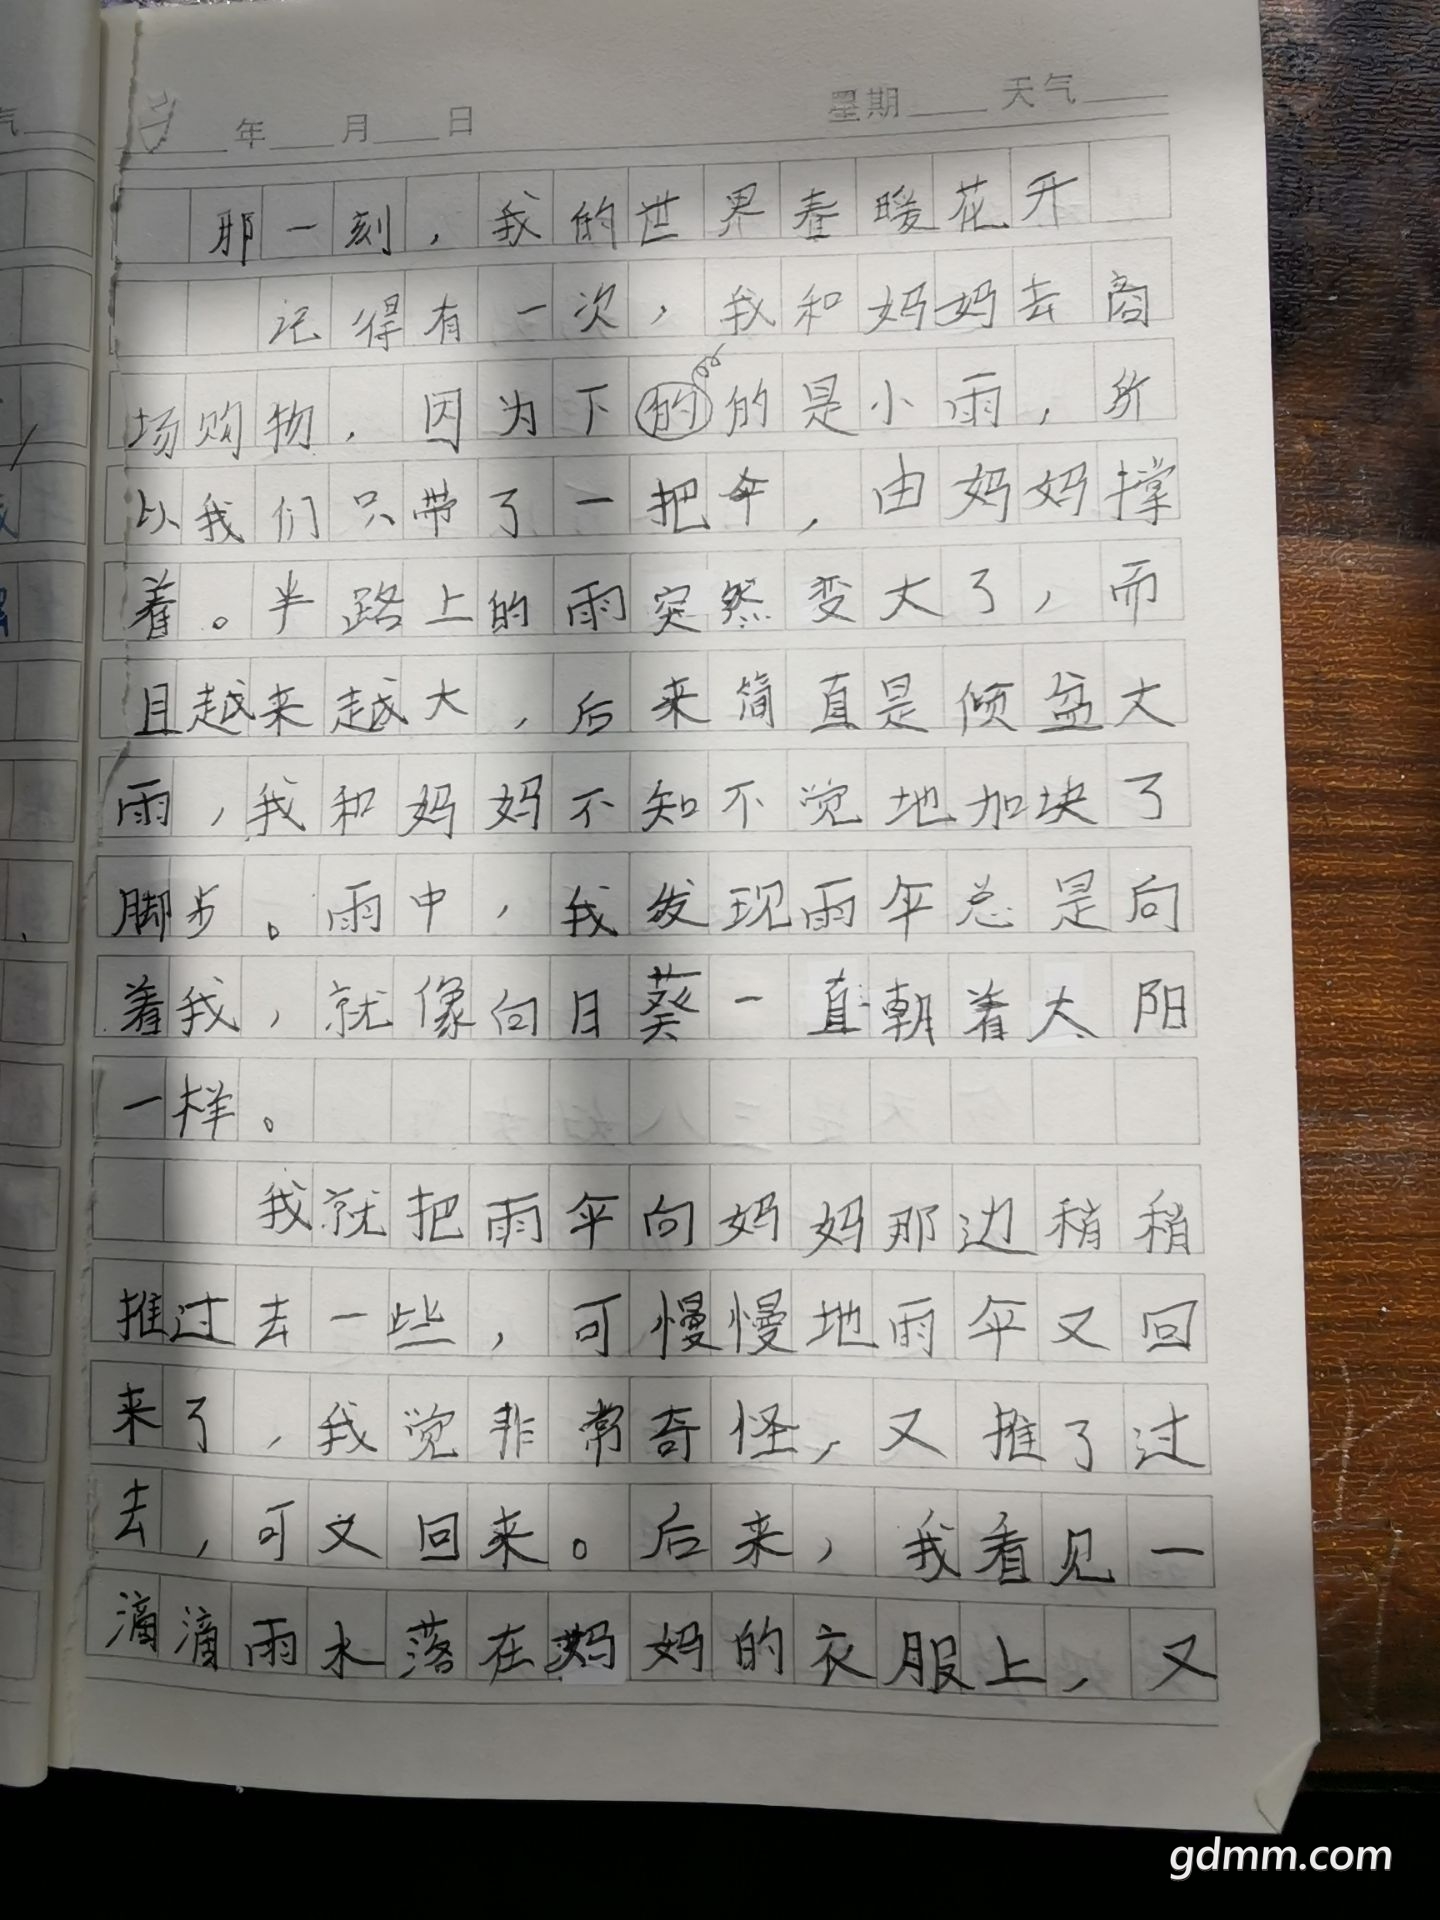 年 月 日 星期 天气
那一刻，我的世界春暖花开
记得有一次，我和妈妈去商
场购物，因为下的的是小雨，所
以我们只带了一把伞，由妈妈撑
着。半路上的雨突然变大了，而
且越来越大，后来简直是倾盆大
雨，我和妈妈不知不觉地加快了
脚步。雨中，我发现雨伞总是向
着我，就像向日葵一直朝着太阳
一样。
我就把雨伞向妈妈那边稍稍
推过去一些，可慢慢地雨伞又回
来了，我觉非常奇怪，又推了过
去，可又回来。后来，我看见一
滴滴雨水落在妈妈的衣服上，又
gdmm.com